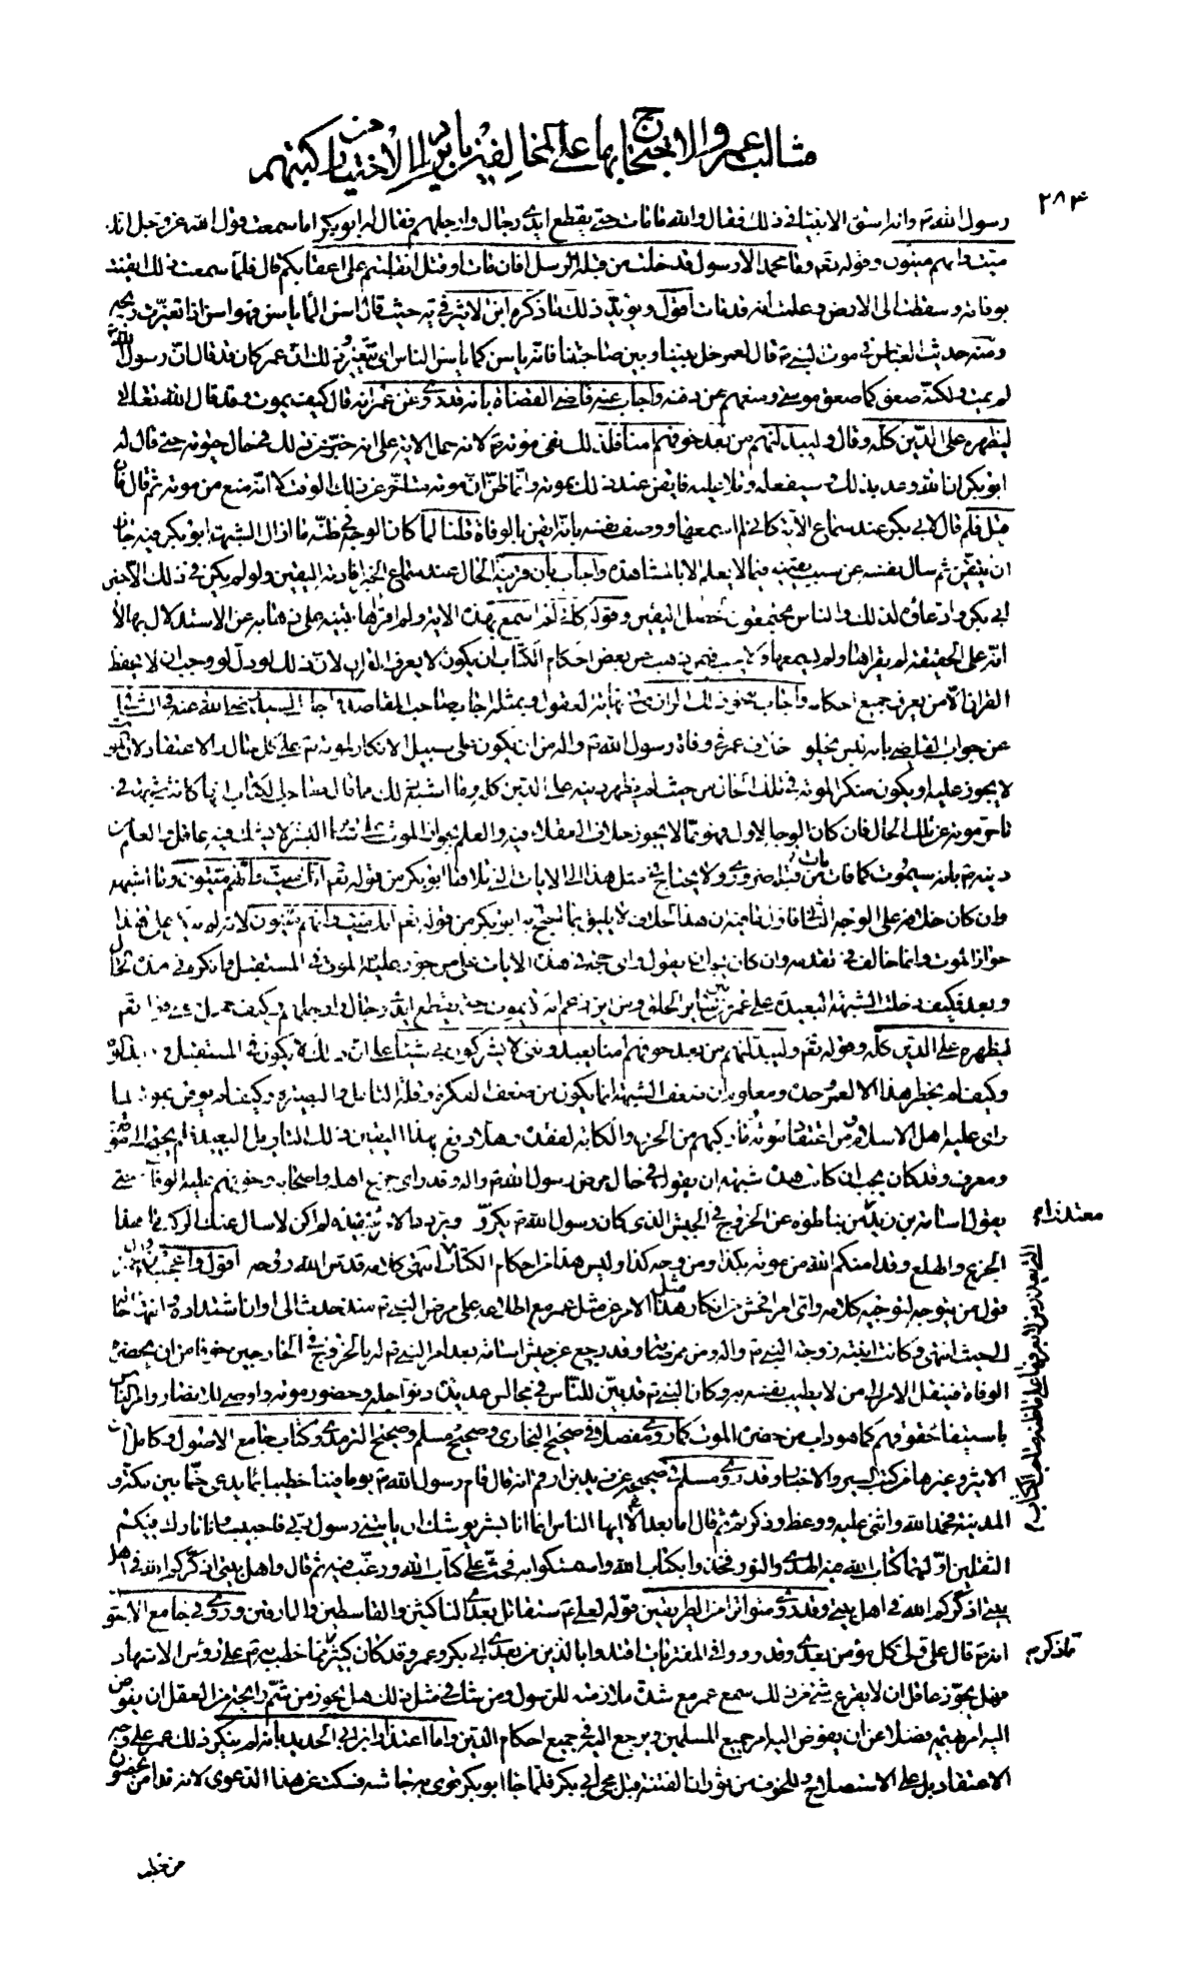 مثالب عمر والاحتجاج بها على المخالفين بايراد الاخبار من كتبهم
٢٨٣
رسول الله ص وانه اسوة الانبياء في ذلك فقال والله ما مات حتى يقطع ايدي رجال وارجلهم فقال له ابو بكر اما سمعت قول الله عز وجل انك
ميت وانهم ميتون وقوله تعم وما محمد الا رسول قد خلت من قبله الرسل افان مات او قتل انقلبتم على اعقابكم قال فلما سمعت ذلك ايقنت
بوفاته وسقطت الى الارض وعلمت انه قد مات اقول ويؤيد ذلك ما ذكره ابن الاثير في يه حيث قال اسن الماء ياسن فهو اسن اذا تغيرت ريحه
ومنه حديث العباس في موت النبي ص قال لعمر خل بيننا وبين صاحبنا فانه ياسن كما ياسن الناس اي يتغير وذلك ان عمر كان قد قال ان رسول الله ص
لم يمت ولكنه صعق كما صعق موسى ومنعهم عن دفنه واجاب عنه قاضي القضاة بانه قد روي عن عمر انه قال كيف يموت وقد قال الله تعالى
ليظهره على الدين كله وقال وليبدلنهم من بعد خوفهم امنا فلذلك نفى موته ص لانه حمل الاية على انه خبر عن ذلك في حال حيوته حتى قال له
ابو بكر ان الله وعد بذلك وسيفعله وتلا عليه فايقن عند ذلك بموته وانما ظن ان موته يتاخر عن ذلك الوقت لا انه منع من موته ثم قال فان
قيل فلم قال لابي بكر عند سماع الاية كاني لم اسمعها ووصف نفسه بانه ايقن بالوفاة قلنا لما كان الوجه في ظنه ما ازال الشبهة ابو بكر فيه جاز
ان يتيقن ثم سال نفسه عن سبب يقينه فيما لا يعلم الا بالمشاهدة واجاب بان قرينة الحال عند سماع الخبر افادته اليقين ولو لم يكن في ذلك الا خبر
ابي بكر وادعاؤه لذلك والناس مجتمعون لحصل اليقين وقوله كاني لم اسمع بهذه الاية ولم اقراها تنبيه على ذهابه عن الاستدلال بها لا
انه على الحقيقة لم يقراها ولم يسمعها ولا يجب فيمن ذهب عن بعض احكام الكتاب ان يكون لا يعرف القران لان ذلك لو دل لوجب ان لا يحفظ
القران الا من يعرف جميع احكامه واجاب بنحو ذلك الرازي في نهاية العقول وبمثله اجاب صاحب المقاصد واجاب السيد رضي الله عنه في الشافي
عن جواب القاضي بانه ليس يخلو خلاف عمر في وفاة رسول الله ص واله من ان يكون على سبيل الانكار لموته ص على كل حال والاعتقاد لان الموت
لا يجوز عليه او يكون منكرا لموته في تلك الحال من حيث لم يظهر دينه على الدين كله وما اشبه ذلك مما قال صاحب الكتاب انها كانت شبهة في
تاخر موته عن تلك الحال فان كان الوجه الاول فهو مما لا يجوز خلاف العقلاء فيه والعلم بجواز الموت على سائر البشر لا يشك فيه عاقل والعلم من
دينه ص بانه سيموت كما مات من قبله ضروري ولا يحتاج في مثل هذا الى الايات التي تلاها ابو بكر من قوله تعم انك ميت وانهم ميتون وما اشبهه
وان كان خلافه على الوجه الثاني فاول ما فيه ان هذا الخلاف لا يليق بما احتج به ابو بكر من قوله تعم انك ميت وانهم ميتون لانه لم ينكر على هذا
جواز الموت وانما خالف في تقدمه وان كان يجب ان يقول واي حجة في هذه الايات على من جوز عليه الموت في المستقبل وانكره في هذه الحال
وبعد فكيف دخلت الشبهة البعيدة على عمر من بين سائر الخلق ومن اين زعم انه لا يموت حتى يقطع ايدي رجال وارجلهم وكيف حمل معنى قوله تعم
ليظهره على الدين كله وقوله تعم وليبدلنهم من بعد خوفهم امنا يعبدونني لا يشركون بي شيئا على ان ذلك لا يكون في المستقبل
وكيف لم يخطر هذا الا لعمر وحده ومعلوم ان ضعف الشبهة انما يكون من ضعف الفكرة وقلة التامل والبصيرة وكيف لم يوقن بموته لما
راى عليه اهل الاسلام من اعتقاد موته وما ركبهم من الحزن والكابة لفقده وهلا دفع بهذا اليقين ذلك التاويل البعيد فلم يحتج الى موقف
ومعرف وقد كان يجب ان كانت هذه شبهة ان يقول في حال مرض رسول الله ص واله وقد راى جزع اهله واصحابه وخوفهم عليه الوفاة حتى
يقول اسامة بن زيد معتذرا من تباطؤه عن الخروج في الجيش الذي كان رسول الله ص يكرر ويردد الامر بتنفيذه لم اكن لاسال عنك الركب ما هذا
الجزع والهلع وقد امنكم الله من موته بكذا ومن وجه كذا وليس هذا من احكام الكتاب انتهى كلامه قدس الله روحه اقول واعجب من
قول من يتوجه لتوجيه كلامه واي امر افحش من انكار مثل هذا الامر عن مثل عمر مع اطلاعه على مرض النبي ص منذ حدث الى اوان اشتداده وانتهاء حاله
الى حيث انتهى وكانت ابنته زوجة النبي ص واله ومن ممرضاته وقد رجع عن جيش اسامة بعد امر النبي ص له بالخروج في الخارجين خوفا من ان يحضره
الوفاة فينقل الامر الى من لا يطيب نفسه به وكان النبي ص قد بين للناس في مجالس عديدة دنو اجله وحضور موته واوصى للانصار وامر الناس
باستيفاء حقوقهم كما هو داب من حضره الموت كما روي مفصلا في صحيح البخاري وصحيح مسلم وصحيح الترمذي وكتاب جامع الاصول وكامل ابن
الاثير وغيرها من كتب السير والاخبار وقد روى مسلم في صحيحه عن زيد بن ارقم انه قال قام رسول الله ص يوما فينا خطيبا بماء يدعى خما بين مكة و
المدينة فحمد الله واثنى عليه ووعظ وذكر ثم قال اما بعد الا ايها الناس انما انا بشر يوشك ان ياتيني رسول ربي فاجيب وانا تارك فيكم
الثقلين اولهما كتاب الله فيه الهدى والنور فخذوا بكتاب الله واستمسكوا به فحث على كتاب الله ورغب فيه ثم قال واهل بيتي اذكركم الله في اهل
بيتي اذكركم الله في اهل بيتي وقد روي متواترا من الطريقين قوله لعلي ص ستقاتل بعدي الناكثين والقاسطين والمارقين وروي في جامع الاصول
انه ص قال علي ولي كل مؤمن بعدي وقد رووا في المفتريات اقتدوا بالذين من بعدي ابي بكر وعمر وقد كان كثيرا مما خطب به ص على رؤس الاشهاد
فهل يجوز عاقل ان لا يقرع شيء من ذلك سمع عمر مع شدة ملازمته للرسول ومن شك في مثل ذلك هل يجوز من شم رائحة من العقل ان يفوض
اليه امر بهيمة فضلا عن ان يفوض اليه امر جميع المسلمين ويرجع اليه في جميع احكام الدين واما اعتذار ابن ابي الحديد بانه لم ينكر ذلك عمر على وجه
الاعتقاد بل على الاستصلاح وللخوف من ثوران الفتنة قبل مجيء ابي بكر فلما جاء ابو بكر قوي به جاشه فسكت عن هذا الدعوى لانه قد امن بحضوره
من خطب